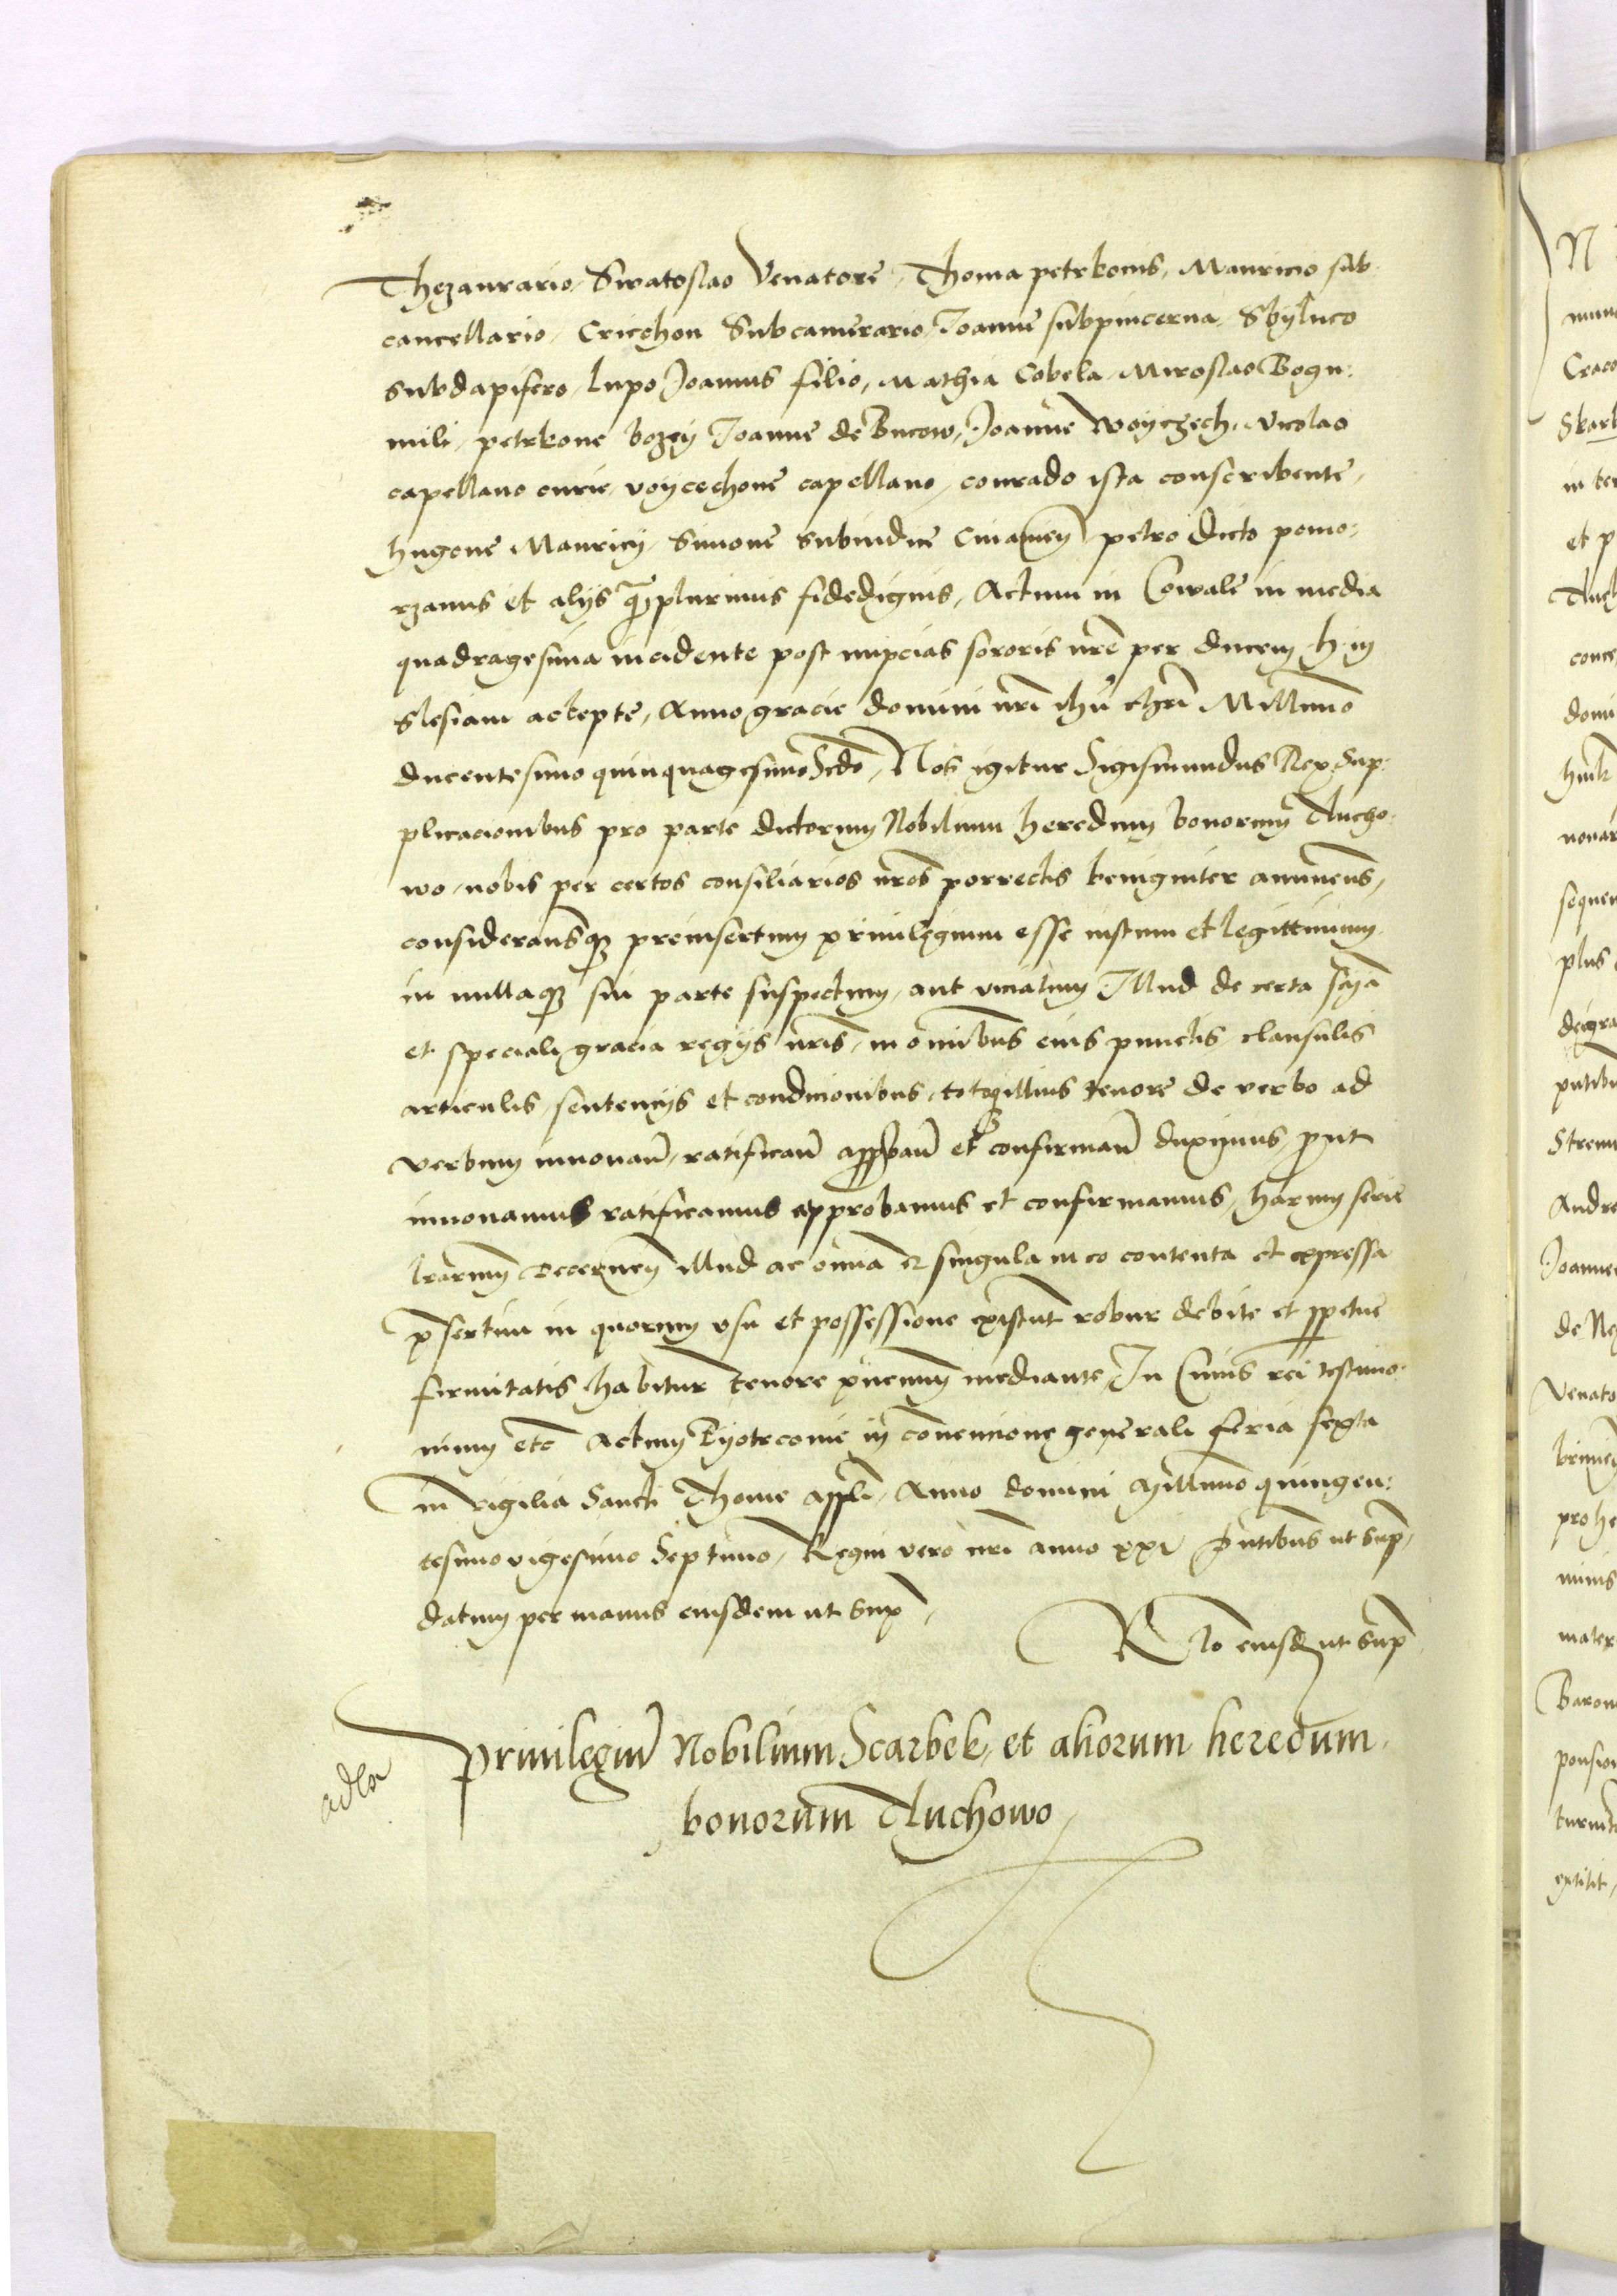 Thezaurario, Swatoslao Venatore, Thoma petrkonis, Mauricio sub
cancellario, Cricchon Subcamerario, Joanne subpincerna, Sbyluco
subdapifero, Lupo Joannis filio, Mathia Cobela, Miroslao Bogu:
mili, petrkone bozey Joanne de Bucow, Joanne Woyczech, Nicolao
capellano curie, voycechone capellano, conrado ista conscribente,
hugone Mauricy, Simone subiudice petro dicto pomo:
rzanus et alijs q̃plurimis fidedignis, Actum in Cowale in media
quadragesima incidente post nupcias sororis nr̃e per ducem h. in
Slesiam accepte, Anno gracie domini nr̃i ihũ chr̃i Millimo
ducentesimo quinquagesimo Scdo, Nos igitur Sigismundus Rex, Sup:
plicacionibus pro parte dictorum Nobilium heredum bonorum Aucho:
wo, nobis per certos consiliarios nr̃os porrectis benigniter annuens,
consideransq; preinsertum privilegium esse iustum et legittimum
in nullaq; sui parte suspectum, aut viciatum Illud de certa scia
et speciali gracia regijs nr̃is, in omibus eius punctis clausulis
articulis sentencijs et condicionibus, totoq; illius tenore de verbo ad
verbum innovañ, ratificañ approbañ et confirmañ duximus, prout
innovamus ratificamus approbamus et confirmamus, harum serie
lr̃arum decernen illud ac omnia et singula in eo contenta et expressa
p̃sertim in quorum usu et possessione existunt robur debite et perpetue
firmitatis habitur tenore pñcium mediante, In Cuius rei testimo:
nium etc̃ Actum Pyotrcovie in convencione generali feria sexta
in vigilia Sancti Thome appli, Anno domini Millimo quingen:
tesimo vigesimo Septimo, Regni vero nr̃i anno xxi p̃ntibus ut sup̃,
datum per manus eiusdem ut sup̃,
Rlo eiusd ut sup̃
adla
Privilegiũ Nobilium Scarbek, et aliorum heredum
bonorum Auchowo,
N
Craco
Skarb
in ter
et p
Auch
conce
domi
novar
sequen
plus
Strenu
Andre
Joanne
de
Venato
pro he
mater
Baron
extitit,